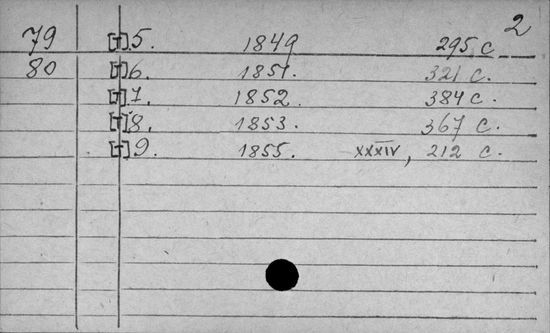 2
79 [т].5. 1849 295 с
80 [т]6. 1851. 321 с.
[т].7. 1852. 384 с.
[т].8. 1853. 367 с.
[т].9. 1855. XXXIV, 212 с.